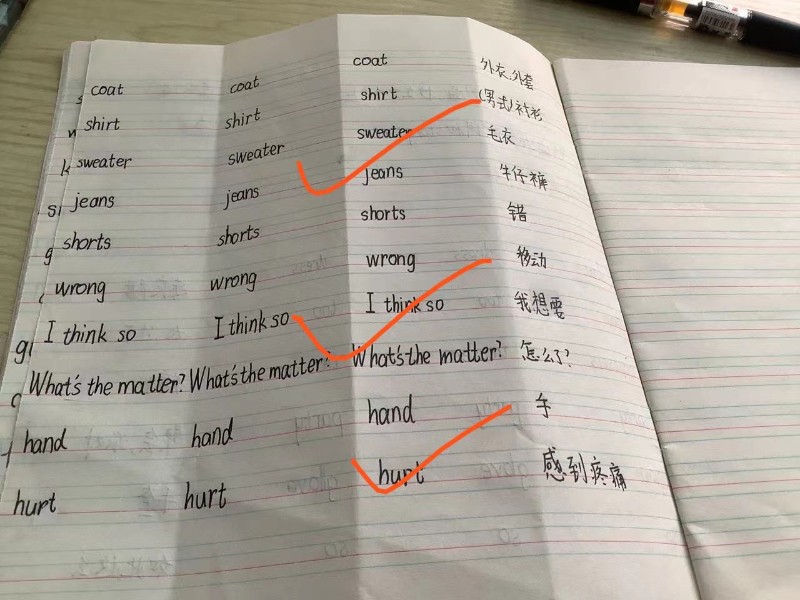 coat coat coat 外衣.外套
shirt shirt shirt (男式)衬衫
sweater sweater sweater 毛衣
jeans jeans jeans 牛仔裤
shorts shorts shorts 错
wrong wrong wrong 移动
I think so I think so I think so 我想要
What's the matter? What's the matter? What's the matter? 怎么了?
hand hand hand 手
hurt hurt hurt 感到疼痛